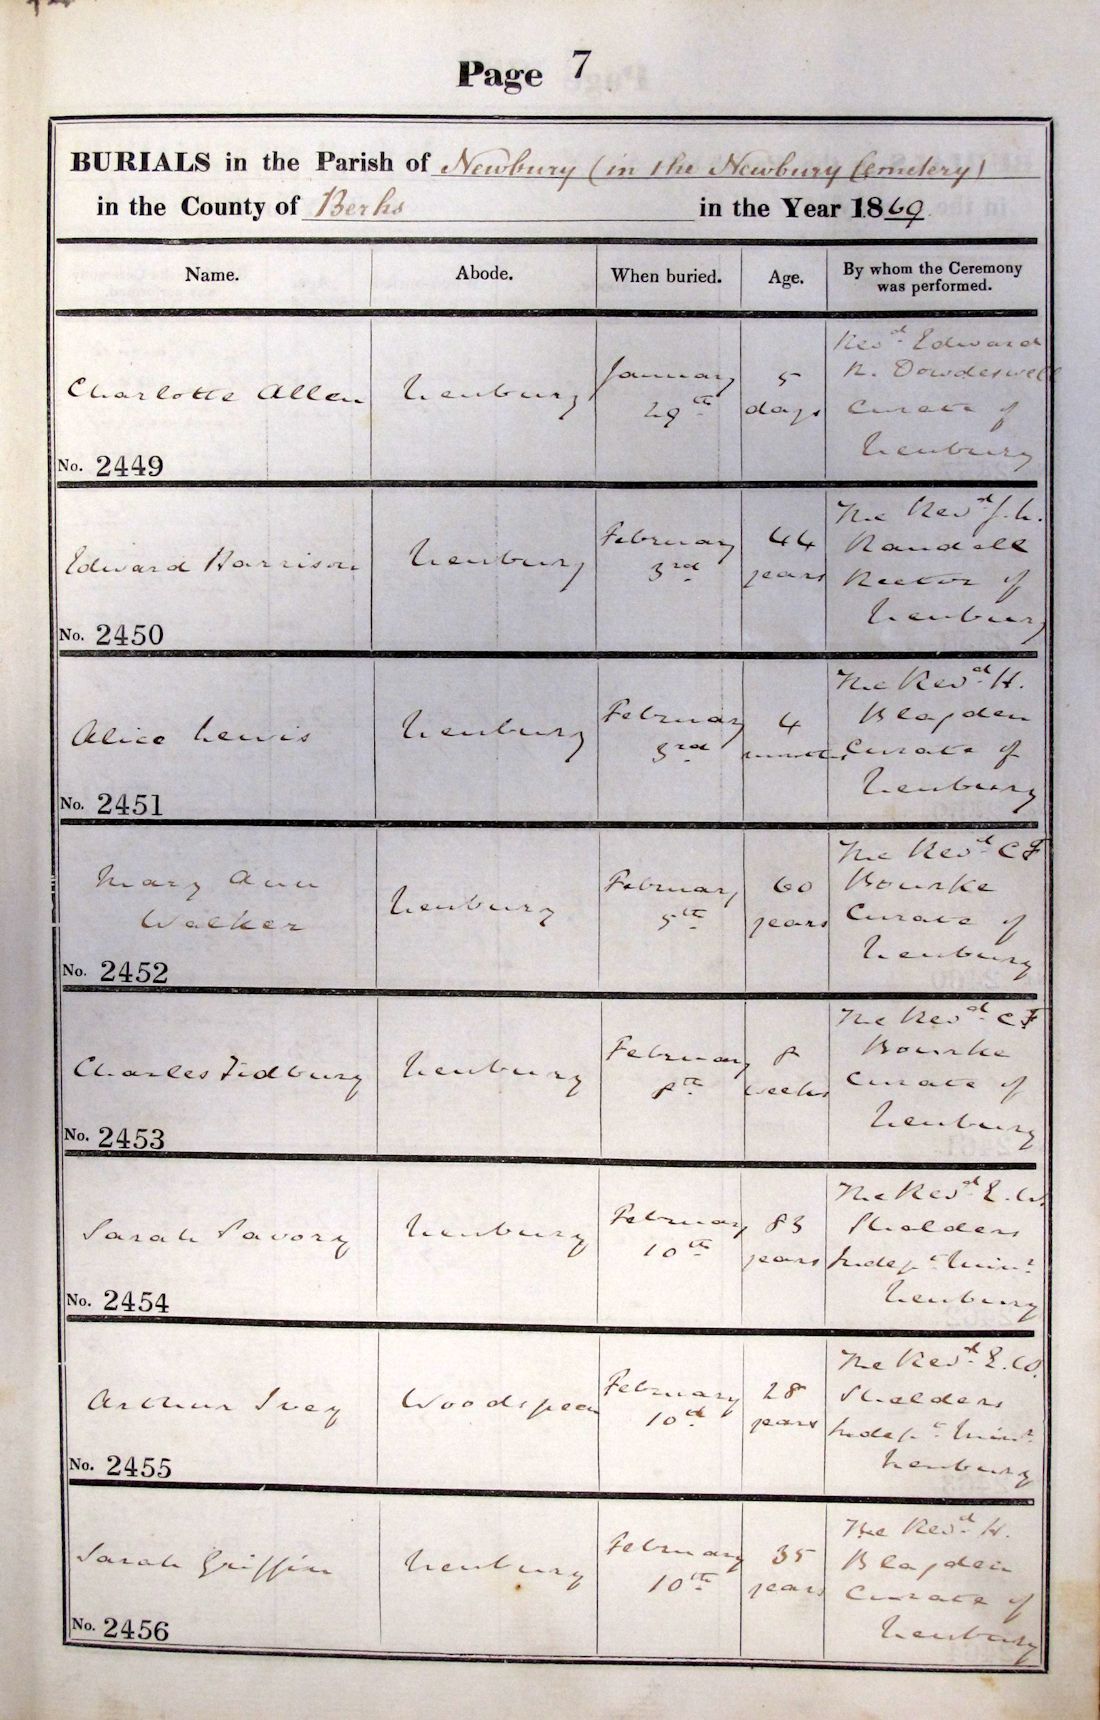 Page 7
BURIALS in the Parish of Newbury (in the Newbury Cemetery)
in the County of Berks in the Year 1869
Name. Abode. When buried. Age. By whom the Ceremony was performed.
Revd Edward
January 5 R. Dowdeswell
Charlotte Allen Newbury 29th days Curate of
Newbury
No. 2449
The Revd J. L.
February 44 Randall
Edward Harrison Newbury 3rd years Rector of
Newbury
No. 2450
The Revd H.
February 4 Blagden
Alice Lewis Newbury 3rd months Curate of
Newbury
No. 2451
The Revd C F
Mary Ann February 60 Bourke
Walker Newbury 5th years Curate of
Newbury
No. 2452
The Revd C F
February 8 Bourke
Charles Tidbury Newbury 8th weeks Curate of
Newbury
No. 2453
The Revd E. W.
February 83 Shalders
Sarah Savory Newbury 10th years Indept Minr
Newbury
No. 2454
The Revd E. W.
February 28 Shalders
Arthur Ivey Woodspeen 10th years Indept Minr
Newbury
No. 2455
The Revd H.
February 35 Blagden
Sarah Griffin Newbury 10th years Curate of
Newbury
No. 2456